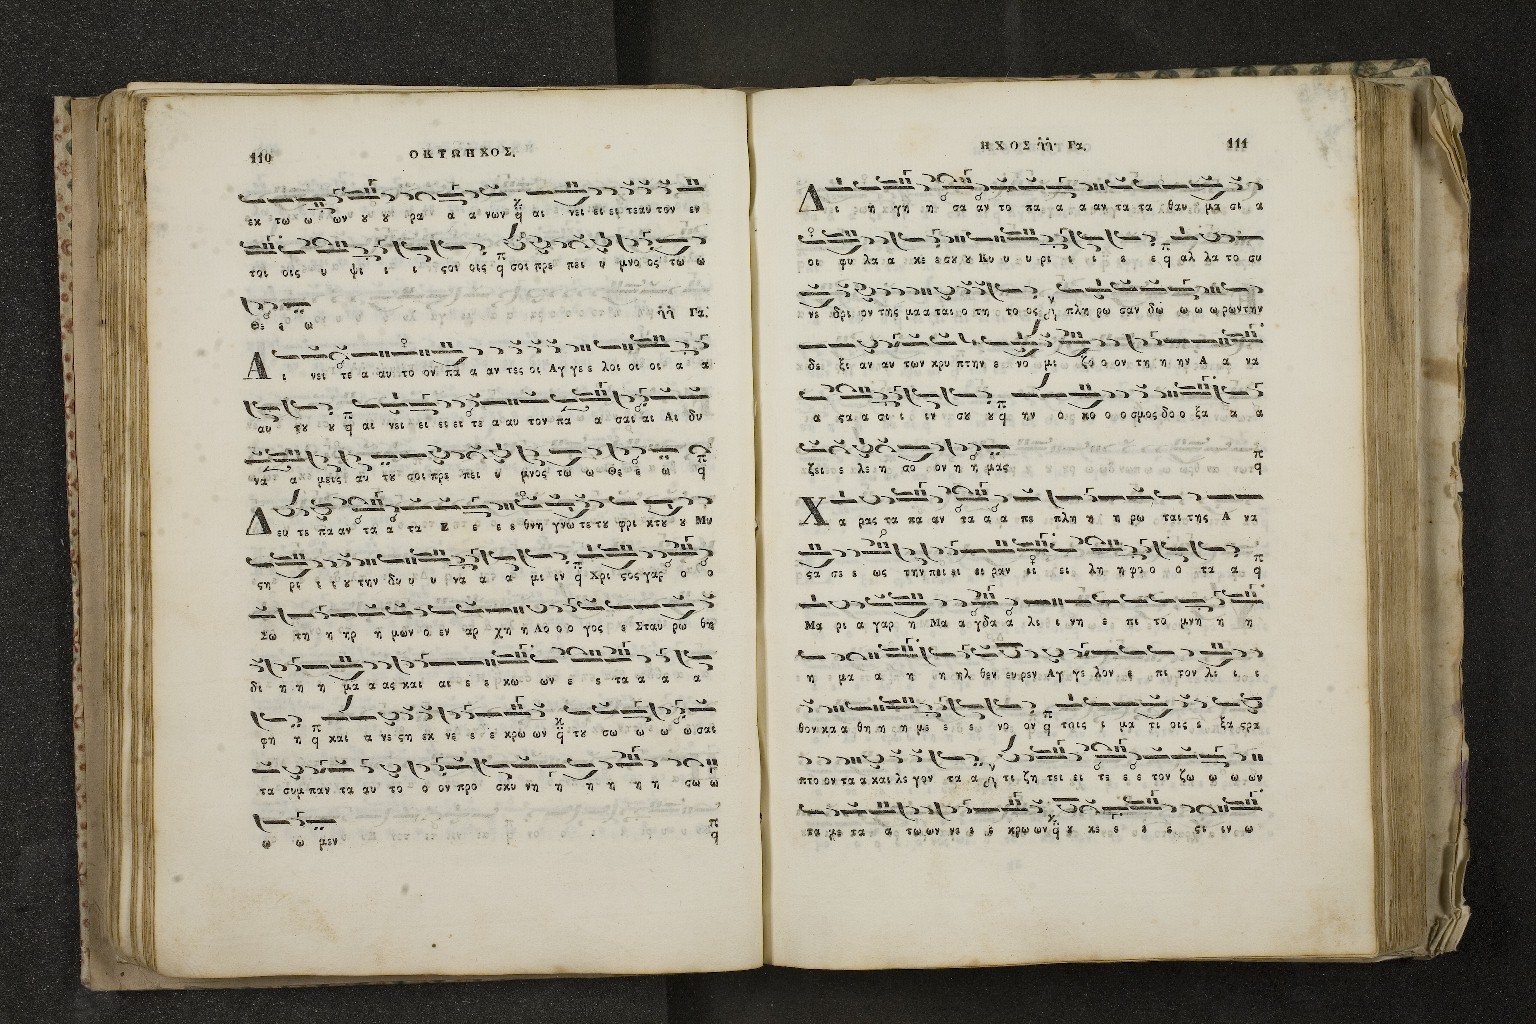 110
ΟΚΤΩΗΧΟΣ.
εκ τω ω ων ου ου ρα α α νων αι νει ει ει τε αυ τον εν
τοι οις υ ψι ι ι ςοι οις σοι πρε πει υ μνο ος τω ω
Θε ε ω
Γα.
Α ι νει τε α αυ το ον πα α αν τες οι Αγ γε ε λοι οι οι α α
αυ του ου αι νει ει ει ει τε α αυ τον πα α σαι αι Αι δυ
να α μεις αυ του σοι πρε πει υ μνος τω ω Θε ε ω
Δ ευ τε πα αν τα α τα Ε ε ε ε θνη γνω τε του φρι κτου ου Μυ
ςη ρι ι ι ου την δυ υ υ να α α μι ιν Χρι ςος γαρ ο ο
Σω τη η ηρ η μων ο εν αρ χη η Λο ο ο γος ε Σταυ ρω θη
δι η η η μα α ας και αι ε ε κω ων ε ε τα α α α
φη η και α νε ςη εκ νε ε ε κρω ων του σω ω ω ω σαι
τα συμ παν τα αυ το ο ον προ σκυ νη η η η η η σω ω
ω ω μεν
ΗΧΟΣ Γα.
111
Δ ι η γη η σα αν το πα α α αν τα τα θαυ μα σι α
οι φυ λα α κε ε σου ου Κυ υ υ ρι ι ι ε ε αλ λα το συ
νε δρι ον της μα α ται ο τη το ος πλη ρω σαν δω ω ω ω ρων την
δε ξι αν αυ των κρυ πτην ε νο μι ζο ο ον τη η ην Α α να
α ςα α σι ι ιν σου ου ην ο κο ο ο σμος δο ο ξα α α
ζει ε λε η σο ον η η μας
Χ α ρας τα πα αν τα α α πε πλη η η ρω ται της Α να
ςα σε ε ως την πει ει ει ραν ει ει λη η φο ο ο τα α
Μα ρι α γαρ η Μα α γδα α λι ι νη ε πι το μνη η η
η μα α η η ηλ θεν ευ ρεν Αγ γε λον ε πι τον λι ι ι
θον κα α θη η η με ε ε νο ον τοις ι μα τι οις ε ξα ςρα
πτο ον τα α και λε γον τα α τι ζη τει ει τε ε ε τον ζω ω ω ων
τα με τα α τω ων νε ε ε κρω ων ου κε ε ε ε ςι ιν ω